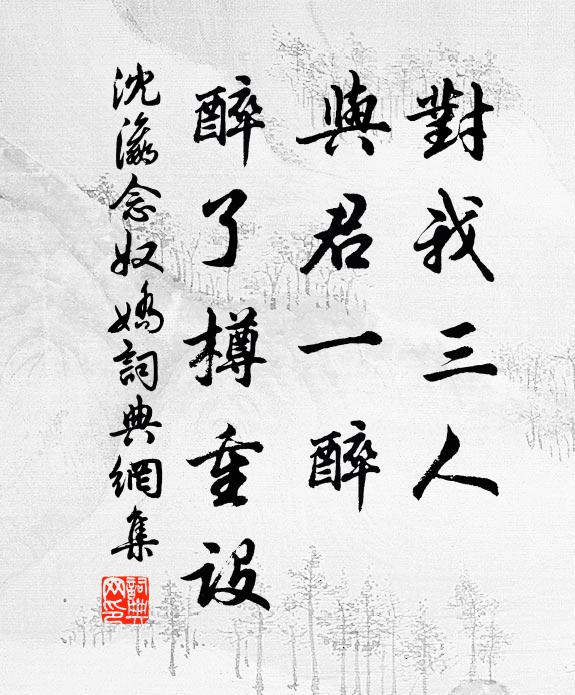 對我三人
與君一醉
醉了樽重設
沈瀛念奴嬌詞典網集
詞典
网印